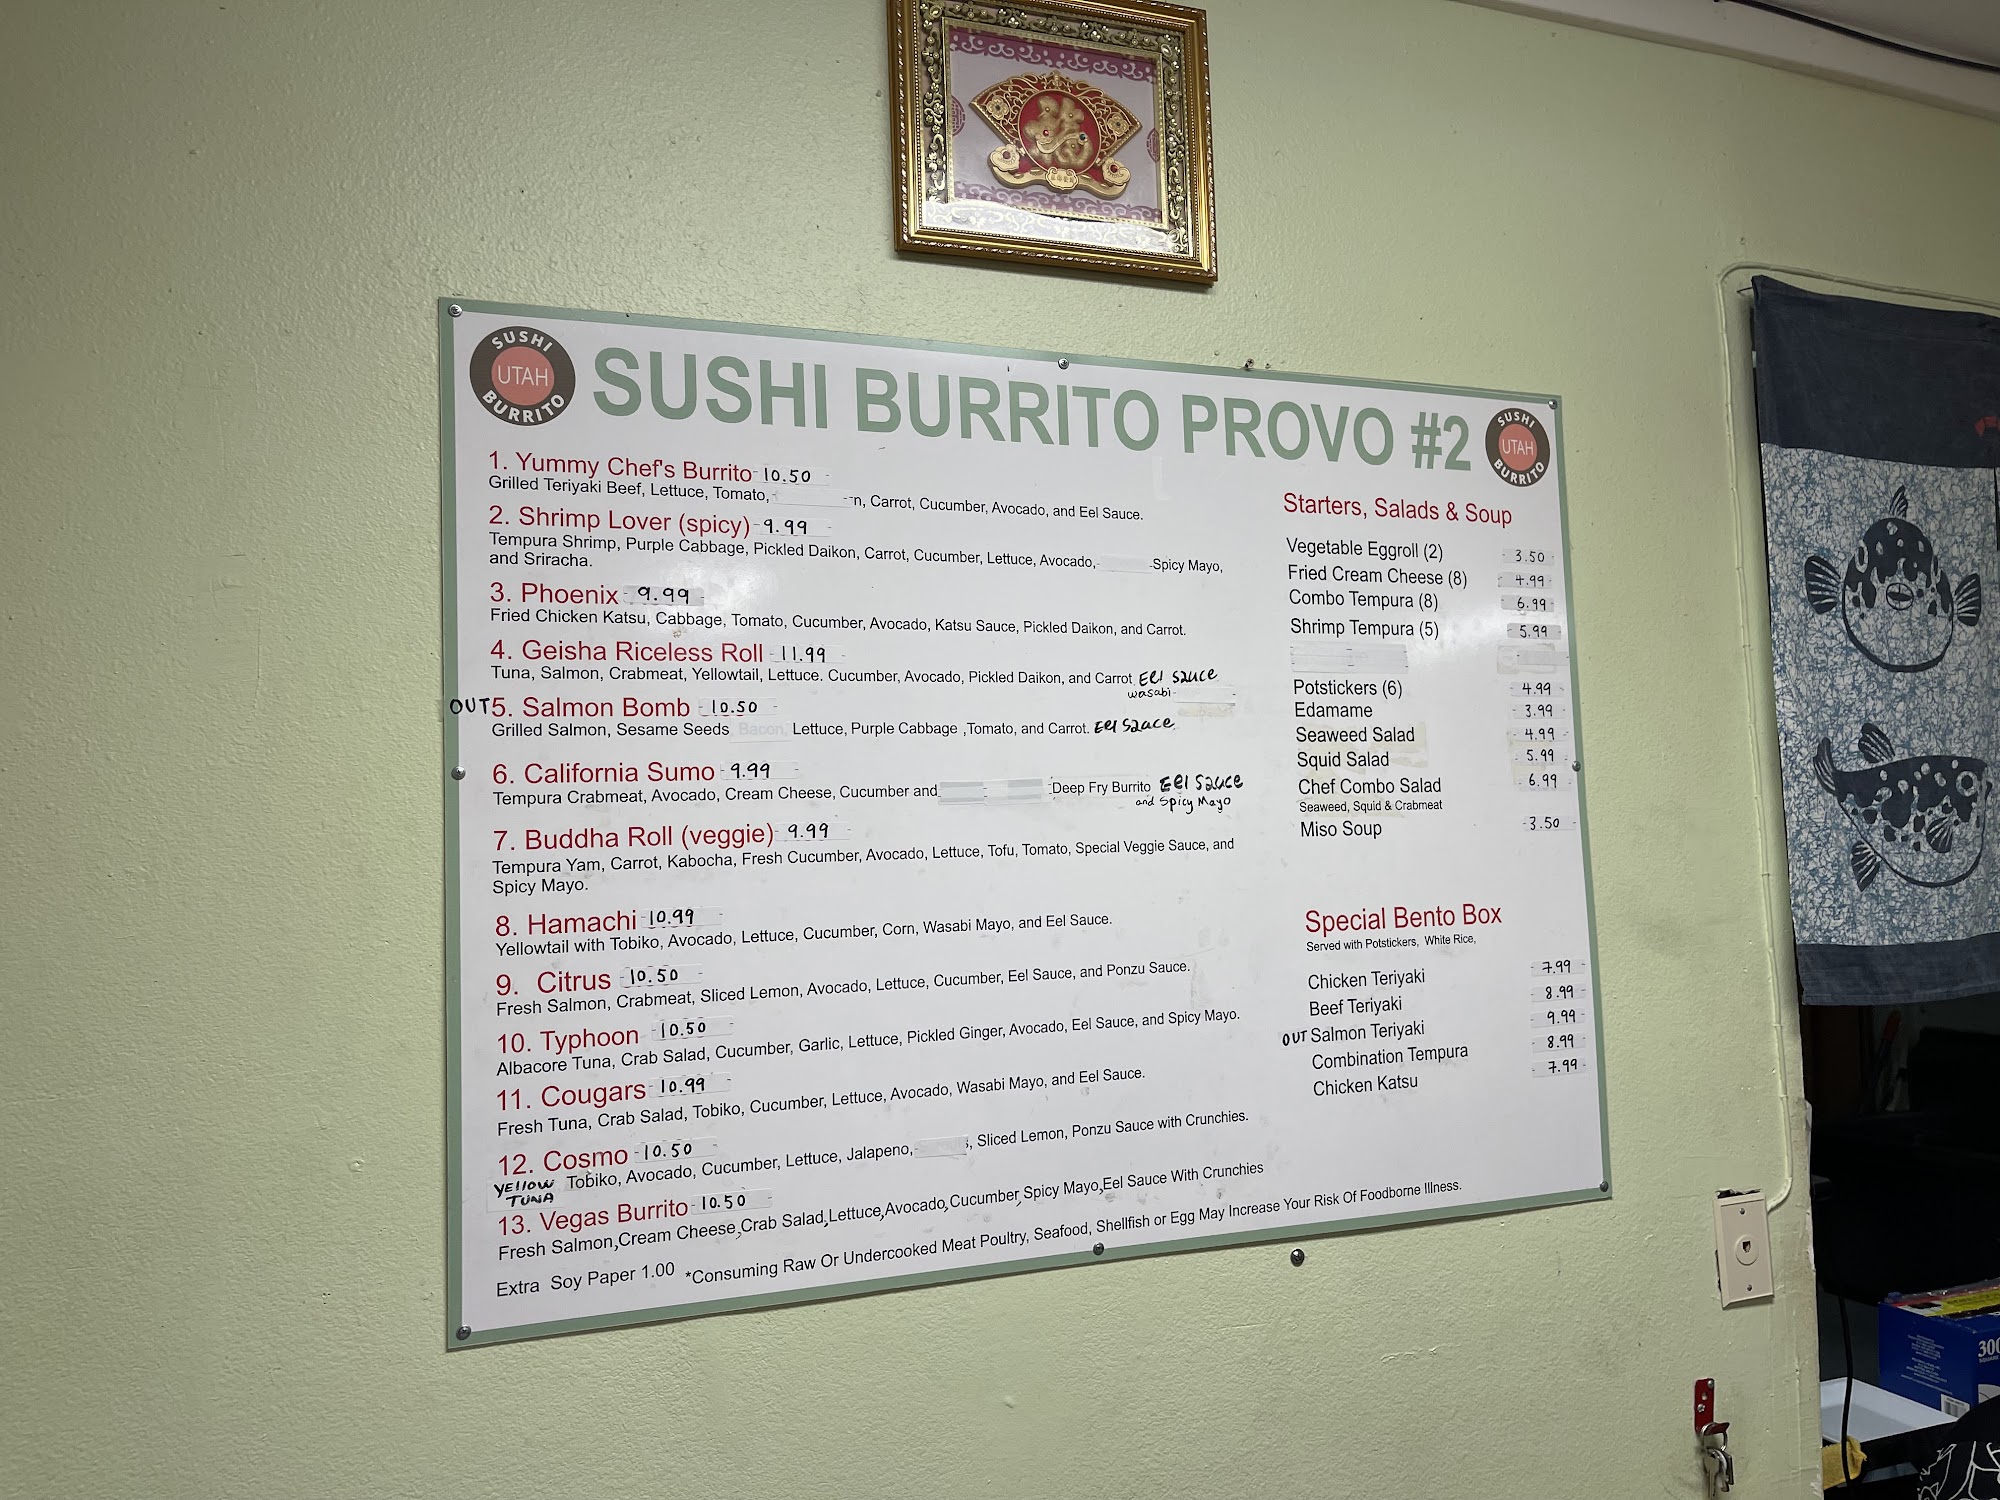 SUSHI UTAH BURRITO
SUSHI BURRITO PROVO #2
SUSHI UTAH BURRITO
1. Yummy Chef's Burrito 10.50
Grilled Teriyaki Beef, Lettuce, Tomato, n, Carrot, Cucumber, Avocado, and Eel Sauce.
2. Shrimp Lover (spicy) 9.99
Tempura Shrimp, Purple Cabbage, Pickled Daikon, Carrot, Cucumber, Lettuce, Avocado, Spicy Mayo,
and Sriracha.
3. Phoenix 9.99
Fried Chicken Katsu, Cabbage, Tomato, Cucumber, Avocado, Katsu Sauce, Pickled Daikon, and Carrot.
4. Geisha Riceless Roll 11.99
Tuna, Salmon, Crabmeat, Yellowtail, Lettuce. Cucumber, Avocado, Pickled Daikon, and Carrot EEl Sauce
wasabi
OUT 5. Salmon Bomb 10.50
Grilled Salmon, Sesame Seeds Bacon, Lettuce, Purple Cabbage ,Tomato, and Carrot. EEl Sauce
6. California Sumo 9.99
Tempura Crabmeat, Avocado, Cream Cheese, Cucumber and Deep Fry Burrito EEl Sauce
and Spicy Mayo
7. Buddha Roll (veggie) 9.99
Tempura Yam, Carrot, Kabocha, Fresh Cucumber, Avocado, Lettuce, Tofu, Tomato, Special Veggie Sauce, and
Spicy Mayo.
8. Hamachi 10.99
Yellowtail with Tobiko, Avocado, Lettuce, Cucumber, Corn, Wasabi Mayo, and Eel Sauce.
9. Citrus 10.50
Fresh Salmon, Crabmeat, Sliced Lemon, Avocado, Lettuce, Cucumber, Eel Sauce, and Ponzu Sauce.
10. Typhoon 10.50
Albacore Tuna, Crab Salad, Cucumber, Garlic, Lettuce, Pickled Ginger, Avocado, Eel Sauce, and Spicy Mayo.
11. Cougars 10.99
Fresh Tuna, Crab Salad, Tobiko, Cucumber, Lettuce, Avocado, Wasabi Mayo, and Eel Sauce.
12. Cosmo 10.50
YEllOW TUNA Tobiko, Avocado, Cucumber, Lettuce, Jalapeno, , Sliced Lemon, Ponzu Sauce with Crunchies.
13. Vegas Burrito 10.50
Fresh Salmon,Cream Cheese,Crab Salad,Lettuce,Avocado,Cucumber,Spicy Mayo,Eel Sauce With Crunchies
Extra Soy Paper 1.00 *Consuming Raw Or Undercooked Meat Poultry, Seafood, Shellfish or Egg May Increase Your Risk Of Foodborne Illness.
Starters, Salads & Soup
Vegetable Eggroll (2) 3.50
Fried Cream Cheese (8) 4.99
Combo Tempura (8) 6.99
Shrimp Tempura (5) 5.99
Potstickers (6) 4.99
Edamame 3.99
Seaweed Salad 4.99
Squid Salad 5.99
Chef Combo Salad 6.99
Seaweed, Squid & Crabmeat
Miso Soup 3.50
Special Bento Box
Served with Potstickers, White Rice,
Chicken Teriyaki 7.99
Beef Teriyaki 8.99
OUT Salmon Teriyaki 9.99
Combination Tempura 8.99
Chicken Katsu 7.99
300